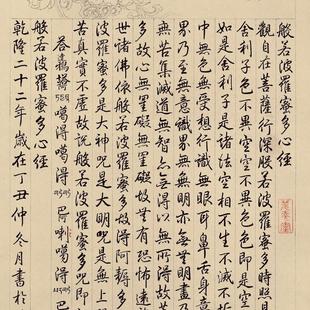 般若波羅蜜多心經
觀自在菩薩行深般若波羅蜜多時照見
舍利子色不異空空不異色色即是空
如是舍利子是諸法空相不生不滅不垢
中無色無受想行識無眼耳鼻舌身意
界乃至無意識界無無明亦無無明盡乃
無苦集滅道無智亦無得以無所得故
多故心無罣礙無罣礙故無有恐怖遠
世諸佛依般若波羅蜜多故得阿耨多
波羅蜜多是大神咒是大明咒是無上
苦真實不虛故說般若波羅蜜多咒即
噶得噶得 巴喇噶得 巴
般若波羅蜜多心經
乾隆二十二年歲在丁丑仲冬月書於